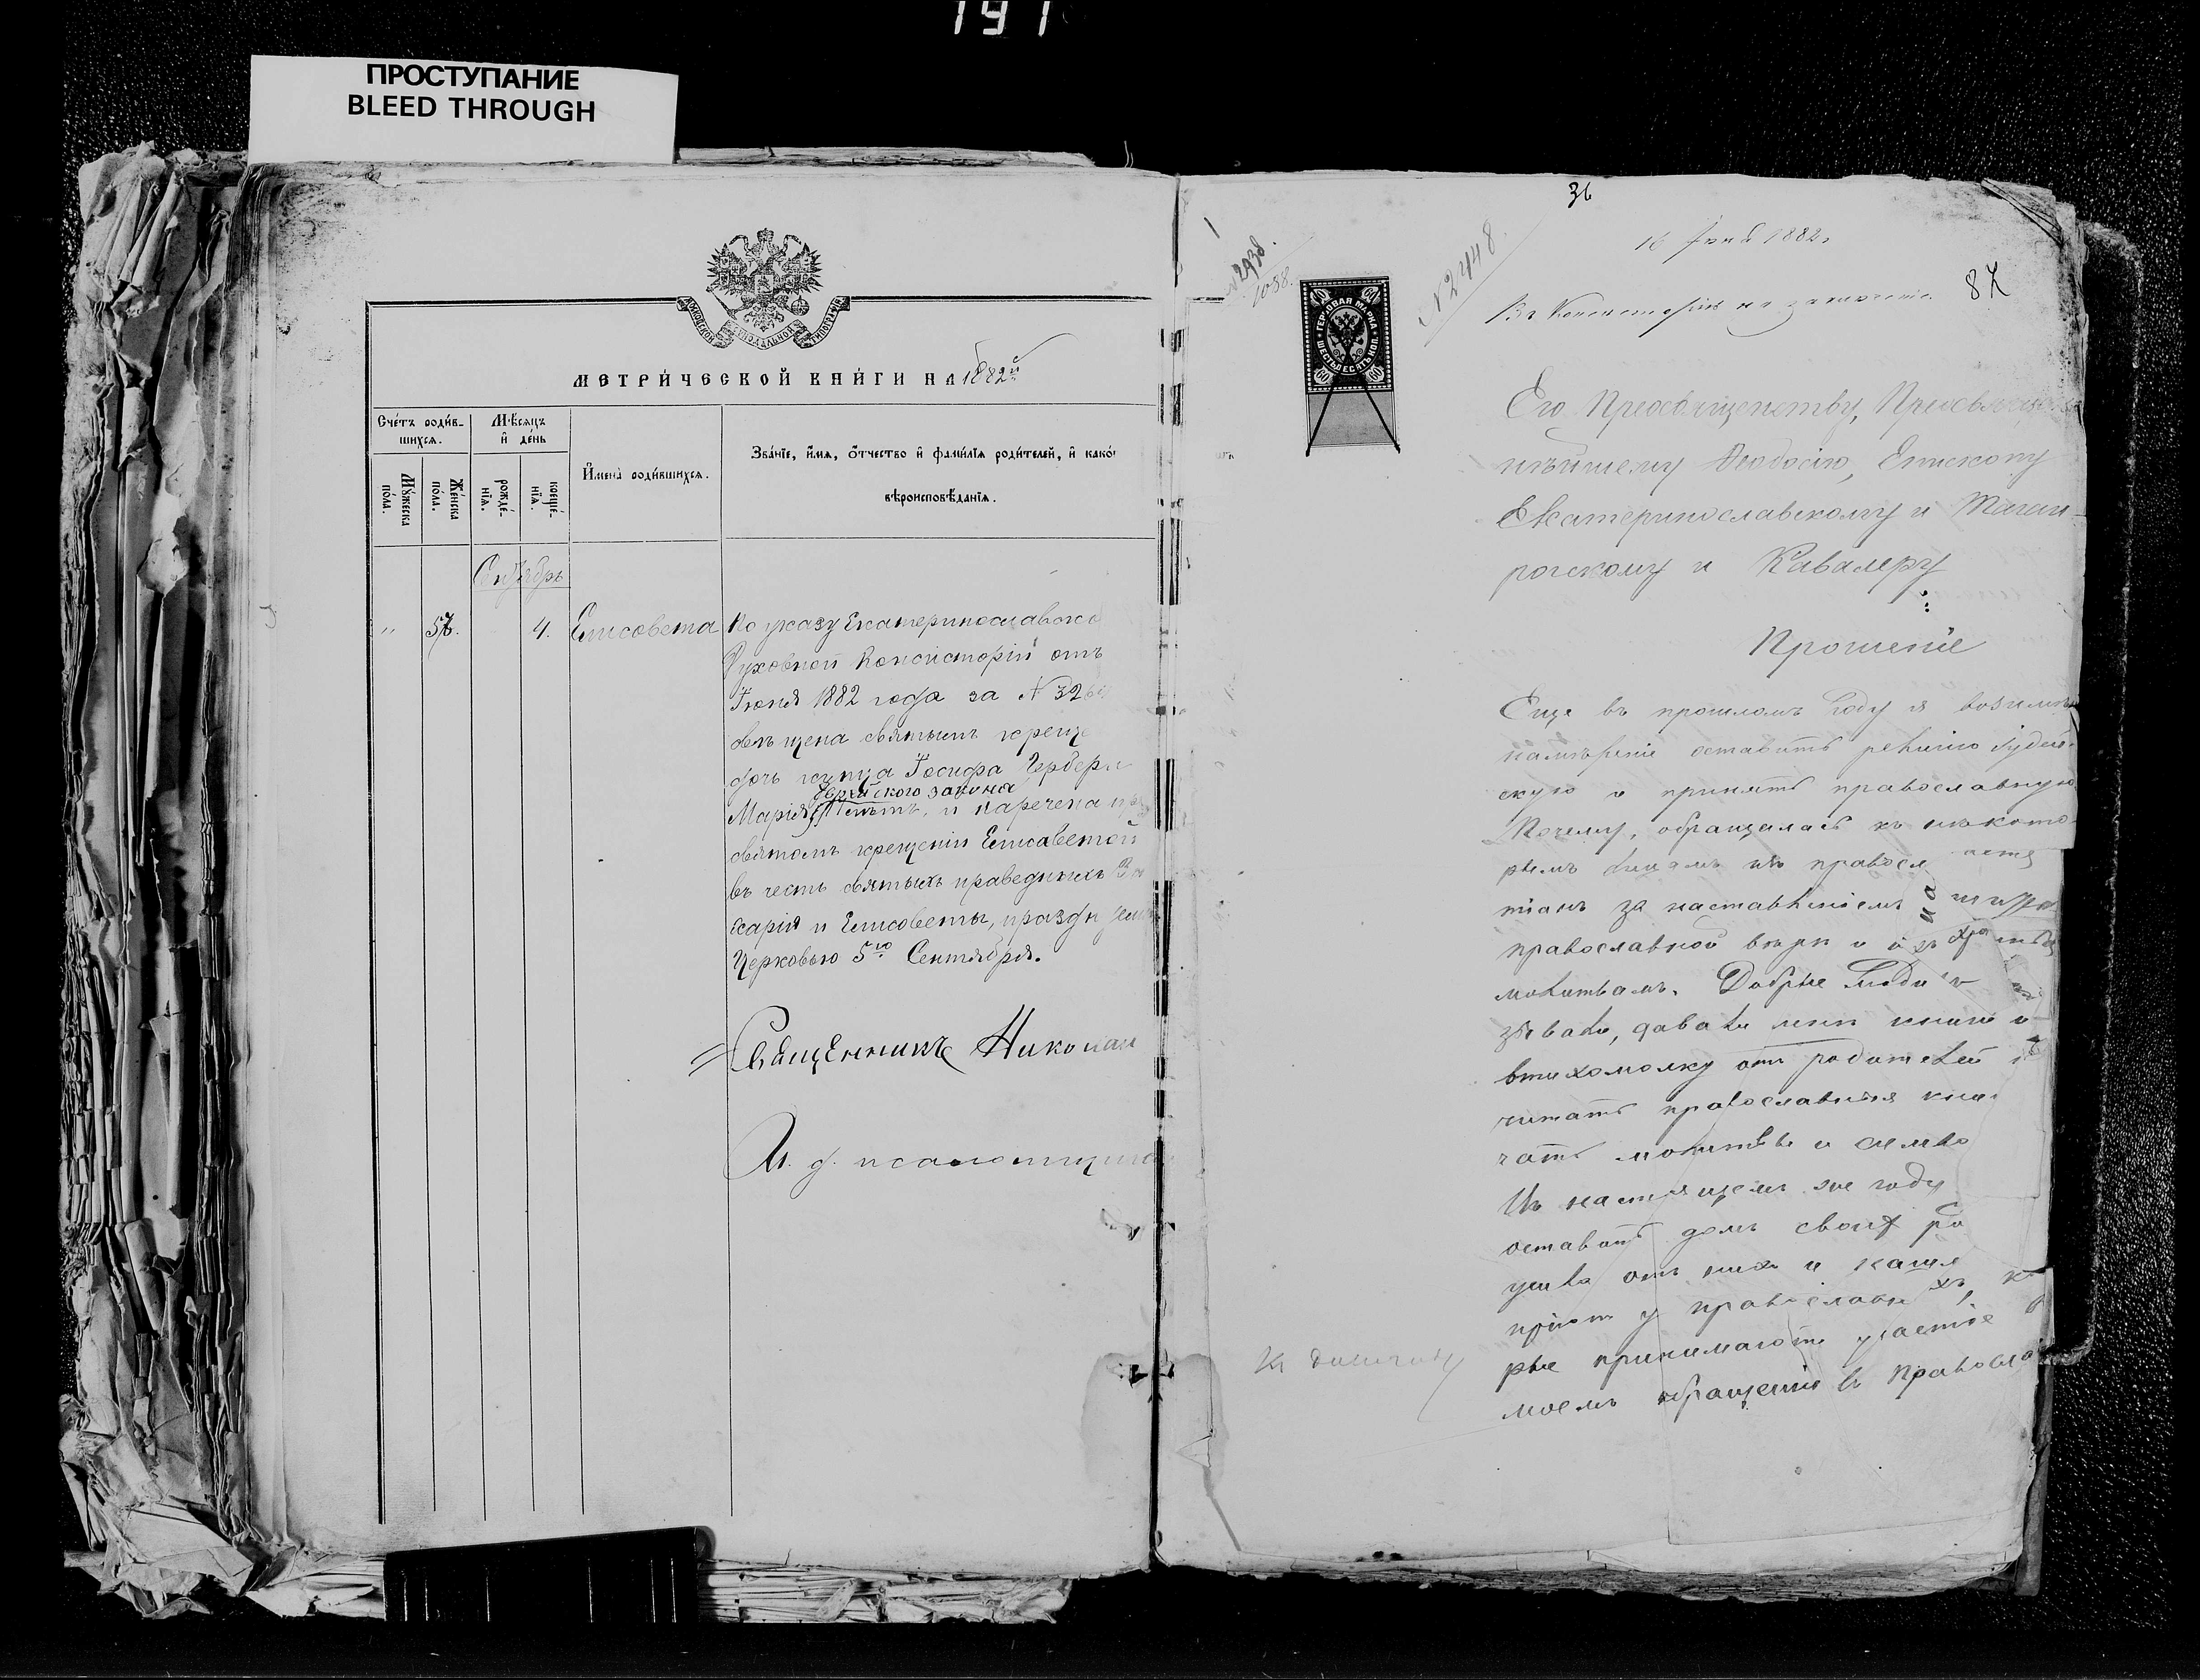 191
ПРОСТУПАНИЕ
BLEED THROUGH
МЕТРИ́ЧЕСКОЙ КНИ́ГИ НА 1882й
Сче́тъ роди́в-
шихся.
Мѣ́сяцъ
и҆ де́нь
Мꙋ́жеска
по́ла.
Же́нска
по́ла.
рожде́-
нїѧ.
креще́-
нїѧ.
И҆мена̀ роди́вшихся.
Зва́нїе, и҆́мя, ѻ҆́тчество и҆ фами́лїя роди́телей, и҆ како́
вѣроисповѣ́данїя.
Октябрь
"
57.
4.
Елисовета
По указу Екатеринославско
Духовной Консисторіи отъ
Іюня 1882 года за №
священа святымъ креще
дочь купца Іосифа Герберъ
Еврейского закона
Марія, и наречена
святомъ крещеніи Елисаветой
въ честь святыхъ праведныхъ За
харія и Елисоветы, праздн
Церковью 5го Сентября.
Священникъ Николай
И. д. псаломщика
36
16 1882
87
№ 2448.
1038.
ГЕРБОВАЯ МАРКА
ШЕСТЬДЕСЯТЪ КОП.
60 60
60 60
Въ Консисторію на заключеніе
Его Преосвященству, Преосвящен
нѣйшему Ѳеодосію, Епископу
Екатеринославскому и Таган-
рогскому и Кавалеру
Прошеніе
Еще въ прошломъ году я возимѣ
намѣреніе оставить религію Іудей-
скую и принять православную
Почему, обращалась къ нѣкото
рымъ лицамъ изъ правосл
тіанъ за наставленіемъ
православной вѣры и
молитвамъ. Добрые люди
зывали, давали мнѣ книги и
втихомолку отъ родителей
читать православныя кни
чать молитвы и
Въ настоящемъ же году
оставить домъ своих ро
ушла отъ нихъ и нашла
пріютъ у православныхъ, ко
рые принимаютъ участіе въ
моемъ обращеніи въ Правосла